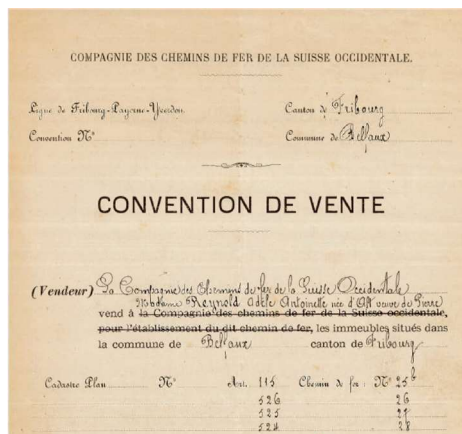 COMPAGNIE DES CHEMINS DE FER DE LA SUISSE OCCIDENTALE.
Ligne de Fribourg-Payerne-Yverdon. Canton de Fribourg
Convention N° Commune de Belfaux
CONVENTION DE VENTE
(Vendeur) La Compagnie des Chemins de fer de la Suisse Occidentale
Madame Reynold Adèle Antoinette née d'Aft veuve de Pierre
vend à la Compagnie des chemins de fer de la Suisse occidentale,
pour l'établissement du dit chemin de fer, les immeubles situés dans
la commune de Belfaux canton de Fribourg
Cadastre Plan N° Art. 115 Chemin de fer : N° 25b
526 26
525 27
524 28